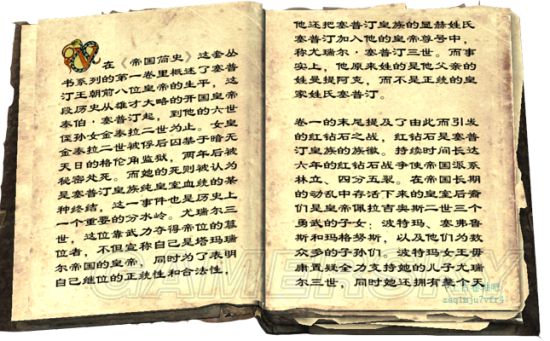 在《帝国简史》这套丛
书系列的第一卷里概述了塞普
汀王朝前八位皇帝的生平，这
段历史从雄才大略的开国皇帝
泰伯·塞普汀起，到他的六世
侄孙女金泰拉二世为止。女皇
金泰拉二世被俘后囚禁于暗无
天日的格伦角监狱，两年后被
秘密处死。而她的死则被认为
是塞普汀皇族纯皇室血统的某
种终结，这一事件也是历史上
一个重要的分水岭。尤瑞尔三
世，这位靠武力夺得帝位的篡
位者，不但宣称自己是塔玛瑞
尔帝国的皇帝，同时为了表明
自己继位的正统性和合法性，
他还把塞普汀皇族的显赫姓氏
塞普汀加入他的皇帝尊号中，
称尤瑞尔·塞普汀三世。而事
实上，他原来姓的是他父亲的
姓曼提阿克，而不是正统的皇
家姓氏塞普汀。
卷一的末尾提及了由此而引发
的红钻石之战，红钻石是塞普
汀皇族的族徽，持续时间长达
六年的红钻石战争使帝国派系
林立、四分五裂。在帝国长期
的动乱中存活下来的皇室后裔
们是皇帝佩拉吉奥斯二世三个
勇武的子女：波特玛、塞弗鲁
斯和玛格努斯，以及他们为数
众多的子孙们。波特玛女王毋
庸置疑全力支持她的儿子尤瑞
尔三世，同时她还拥有整个天
GAMERSKY